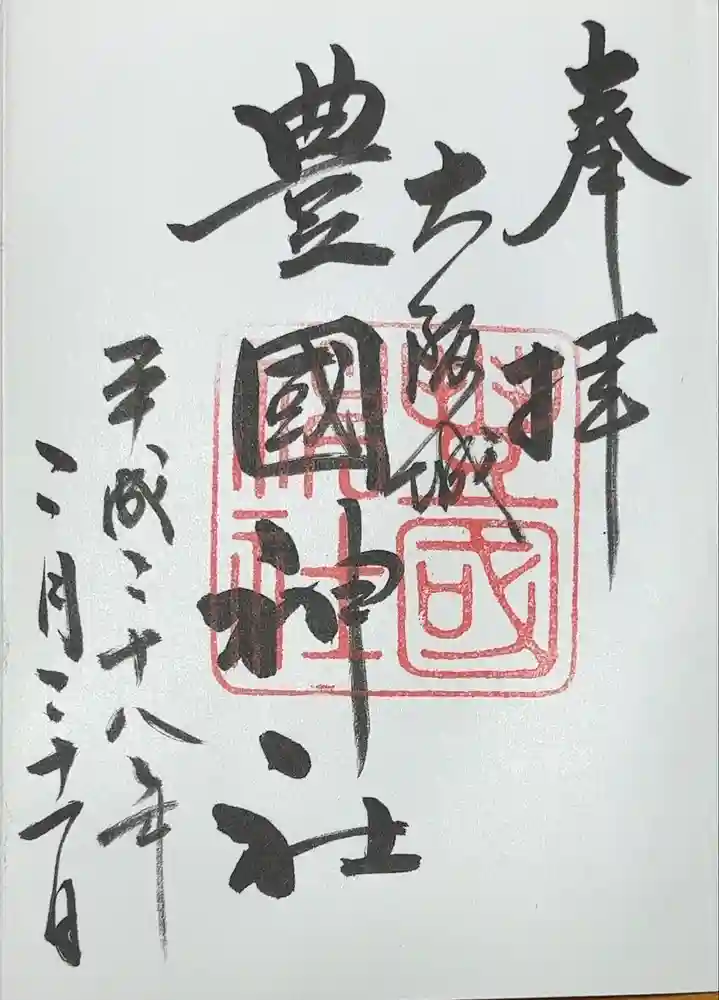 奉拝
大阪城
豊國神社
豊國神社
平成二十八年
二月二十一日